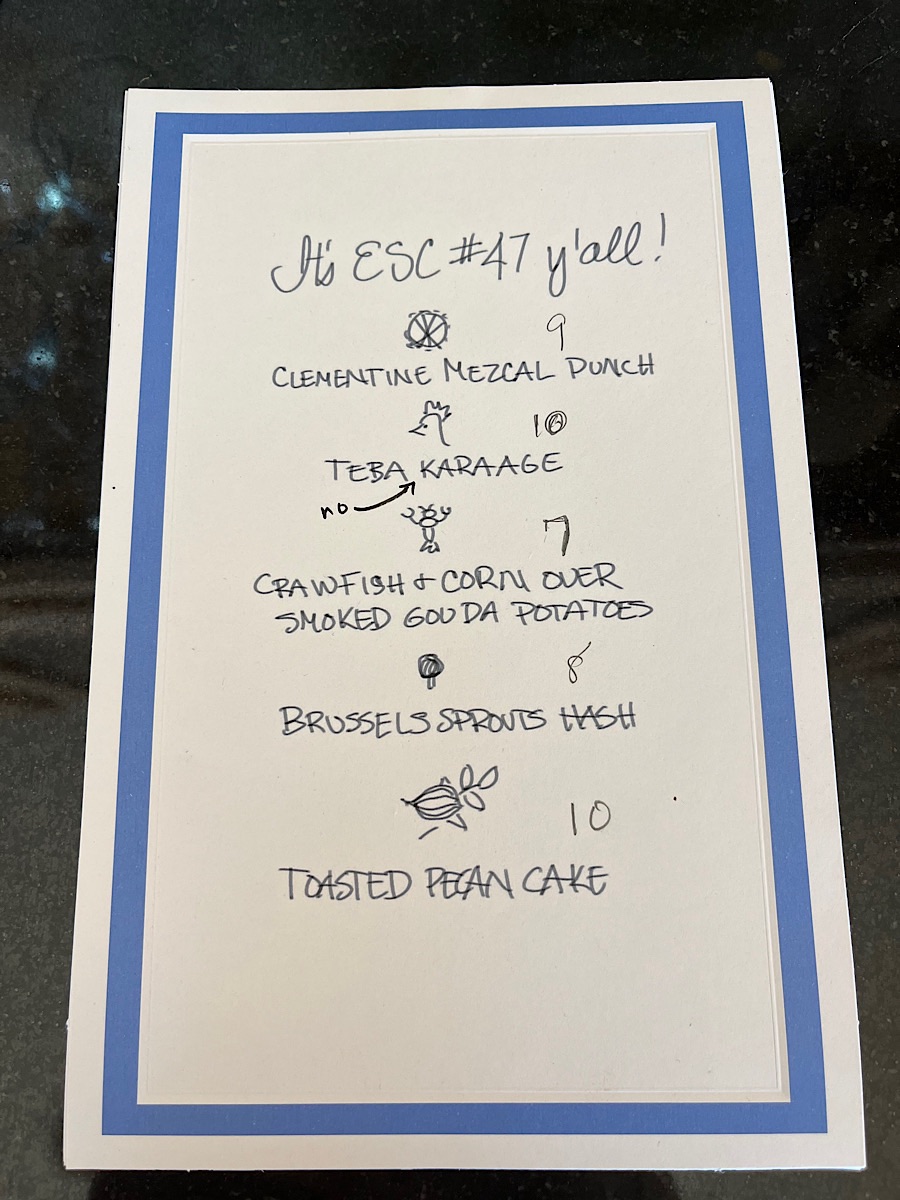 It's ESC #47 y'all!
9
CLEMENTINE MEZCAL PUNCH
10
TEBA KARAAGE
no
7
CRAWFISH & CORN OVER
SMOKED GOUDA POTATOES
8
BRUSSELS SPROUTS HASH
10
TOASTED PECAN CAKE